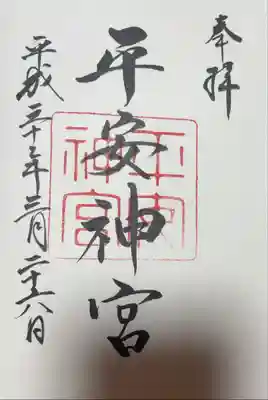 奉拝
平安神宮
平成三十年三月二十六日
平安神宮